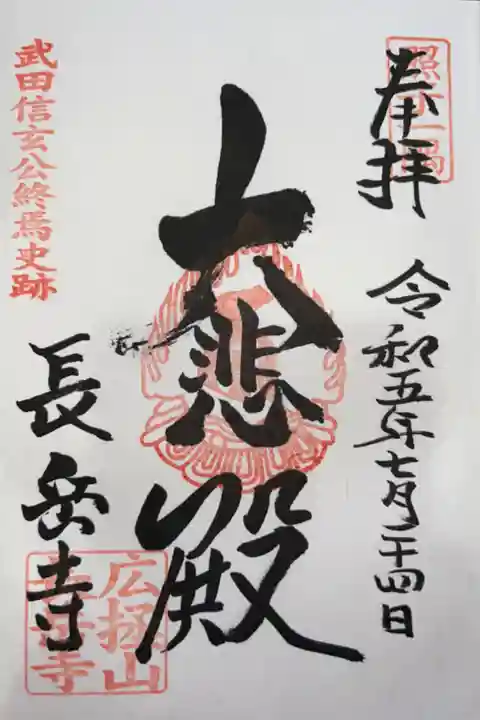 奉拝
照于一隅
令和五年七月二十四日
大悲殿
武田信玄公終焉史跡
長岳寺
広拯山
長岳寺